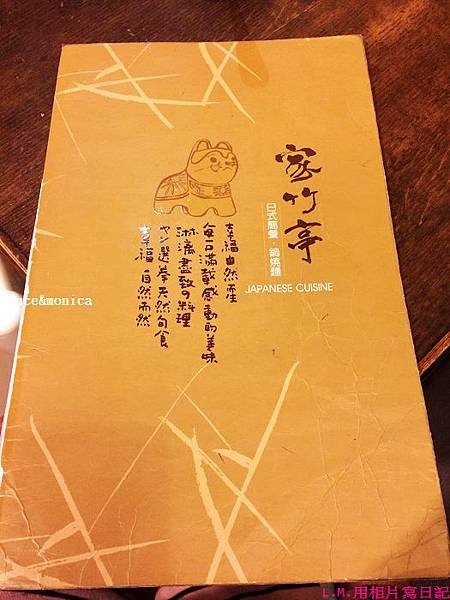 家竹亭
日式簡餐·鍋燒麵
JAPANESE CUISINE
幸福自然在
每口滿載感動的美味
淋漓盡致の料理
嚴選本天然旬食
幸福 自然而然
nce&monica
L.M.用相片寫日記